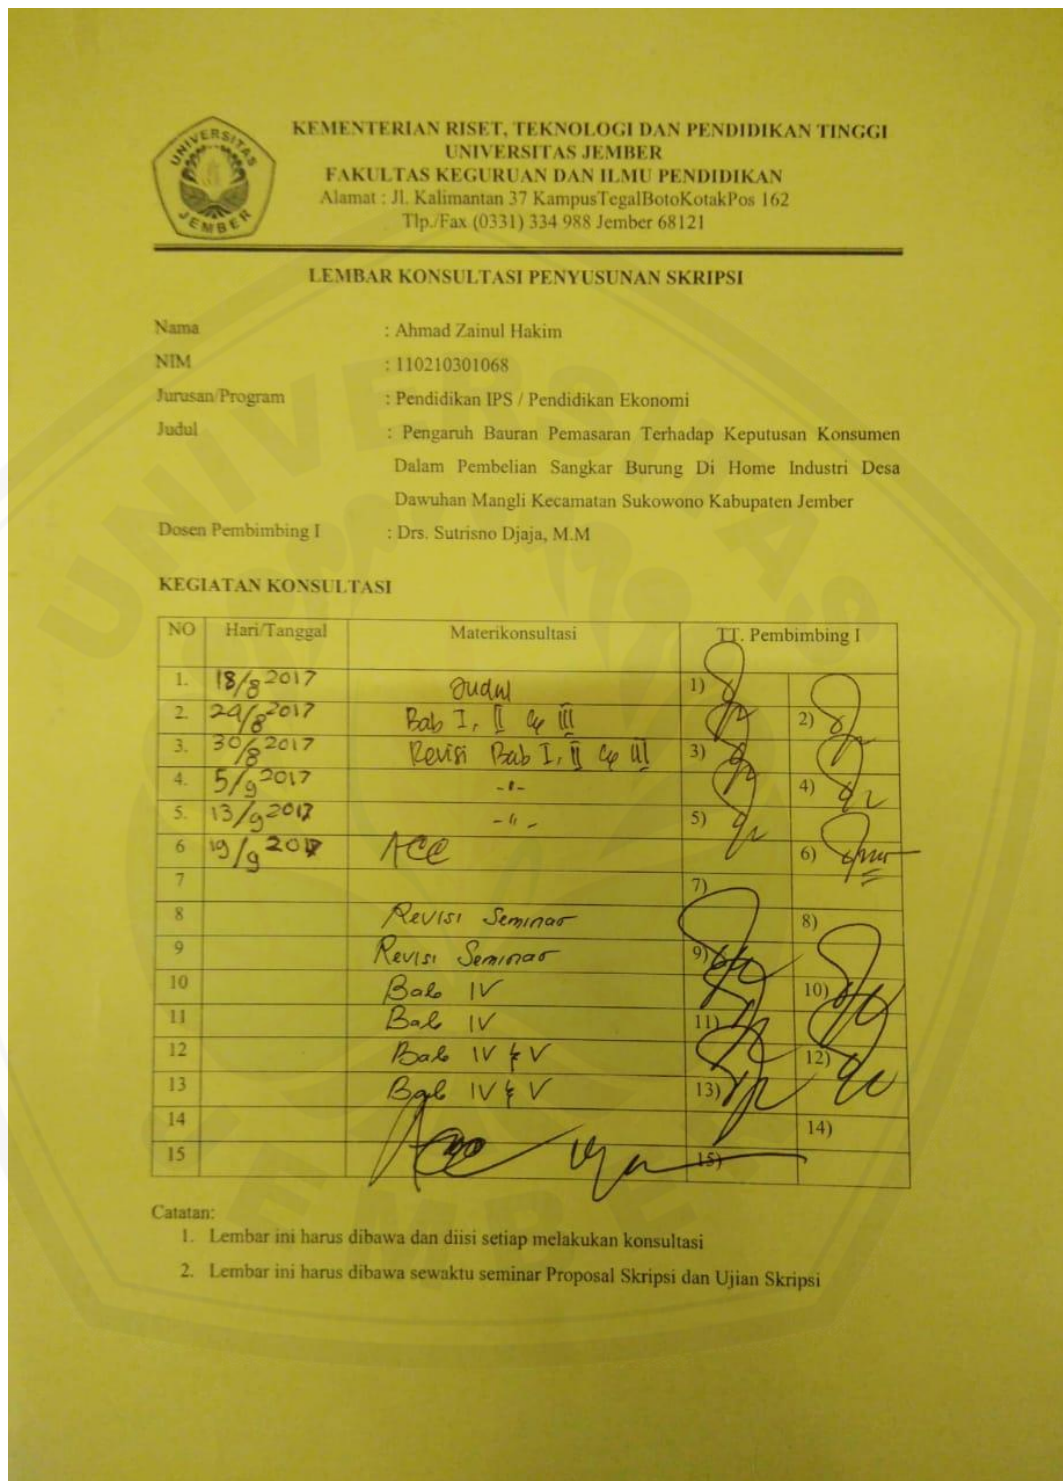 UNIVERSITAS JEMBER
KEMENTERIAN RISET, TEKNOLOGI DAN PENDIDIKAN TINGGI
UNIVERSITAS JEMBER
FAKULTAS KEGURUAN DAN ILMU PENDIDIKAN
Alamat : Jl. Kalimantan 37 KampusTegalBotoKotakPos 162
Tlp./Fax (0331) 334 988 Jember 68121
LEMBAR KONSULTASI PENYUSUNAN SKRIPSI
Nama : Ahmad Zainul Hakim
NIM : 110210301068
Jurusan/Program : Pendidikan IPS / Pendidikan Ekonomi
Judul : Pengaruh Bauran Pemasaran Terhadap Keputusan Konsumen
Dalam Pembelian Sangkar Burung Di Home Industri Desa
Dawuhan Mangli Kecamatan Sukowono Kabupaten Jember
Dosen Pembimbing I : Drs. Sutrisno Djaja, M.M
KEGIATAN KONSULTASI
NO Hari/Tanggal Materikonsultasi TT. Pembimbing I
1. 18/8 2017 Judul 1)
2. 24/8 2017 Bab I, II & III 2)
3. 30/8 2017 Revisi Bab I, II & III 3)
4. 5/9 2017 -"- 4)
5. 13/9 2017 -"- 5)
6 19/9 2017 ACC 6)
7 7)
8 Revisi Seminar 8)
9 Revisi Seminar 9)
10 Bab IV 10)
11 Bab IV 11)
12 Bab IV & V 12)
13 Bab IV & V 13)
14 14)
15 Acc 15)
Catatan:
1. Lembar ini harus dibawa dan diisi setiap melakukan konsultasi
2. Lembar ini harus dibawa sewaktu seminar Proposal Skripsi dan Ujian Skripsi